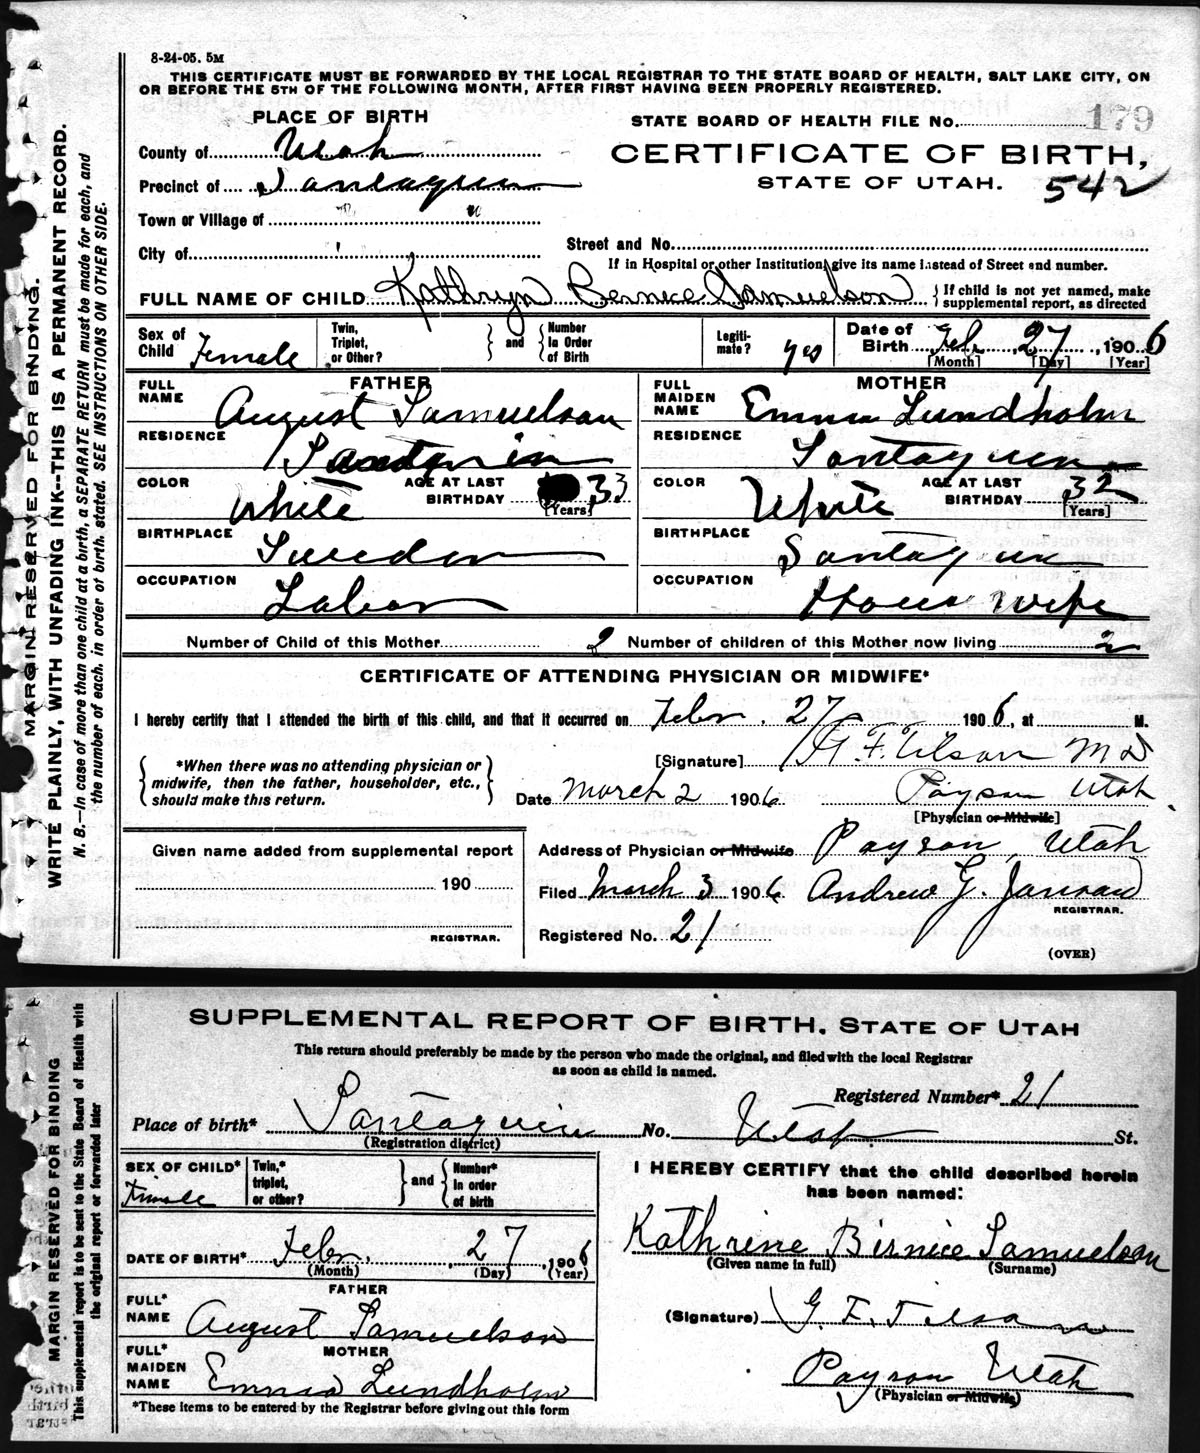 8-24-05. 5M
THIS CERTIFICATE MUST BE FORWARDED BY THE LOCAL REGISTRAR TO THE STATE BOARD OF HEALTH, SALT LAKE CITY, ON
OR BEFORE THE 5TH OF THE FOLLOWING MONTH, AFTER FIRST HAVING BEEN PROPERLY REGISTERED.
MARGIN RESERVED FOR BINDING.
WRITE PLAINLY, WITH UNFADING INK--THIS IS A PERMANENT RECORD.
N. B.—In case of more than one child at a birth, a SEPARATE RETURN must be made for each, and
the number of each, in order of birth, stated. SEE INSTRUCTIONS ON OTHER SIDE.
PLACE OF BIRTH
STATE BOARD OF HEALTH FILE No. 179
County of Utah
CERTIFICATE OF BIRTH,
Precinct of Santaquin
STATE OF UTAH. 542
Town or Village of
City of
Street and No.
If in Hospital or other Institution, give its name instead of Street and number.
FULL NAME OF CHILD Kathryn Bernice Samuelson } If child is not yet named, make
supplemental report, as directed
Sex of Child Female
Twin, Triplet, or Other?
and
Number In Order of Birth
Legiti-mate? yes
Date of Birth Feb. 27, 1906
[Month] [Day] [Year]
FATHER
FULL NAME August Samuelson
RESIDENCE Santaquin
COLOR White AGE AT LAST BIRTHDAY 33 [Years]
BIRTHPLACE Sweden
OCCUPATION Labor
MOTHER
FULL MAIDEN NAME Emma Lundholm
RESIDENCE Santaquin
COLOR White AGE AT LAST BIRTHDAY 32 [Years]
BIRTHPLACE Santaquin
OCCUPATION House wife
Number of Child of this Mother 2 Number of children of this Mother now living 2
CERTIFICATE OF ATTENDING PHYSICIAN OR MIDWIFE*
I hereby certify that I attended the birth of this child, and that it occurred on Febr. 27 1906, at M.
*When there was no attending physician or
midwife, then the father, householder, etc.,
should make this return.
[Signature] G. F. Tilson M D
Date March 2 1906 Payson Utah.
[Physician or Midwife]
Given name added from supplemental report
190
REGISTRAR.
Address of Physician or Midwife Payson, Utah
Filed March 3 1906 Andrew G.
REGISTRAR.
Registered No. 21
(OVER)
MARGIN RESERVED FOR BINDING
This supplemental report is to be sent to the State Board of Health with
the original report or forwarded later
SUPPLEMENTAL REPORT OF BIRTH, STATE OF UTAH
This return should preferably be made by the person who made the original, and filed with the local Registrar
as soon as child is named.
Registered Number* 21
Place of birth* Santaquin No. Utah St.
(Registration district)
SEX OF CHILD* Female
Twin,* triplet, or other?
and
Number* in order of birth
DATE OF BIRTH* Febr. 27, 1906
(Month) (Day) (Year)
FATHER
FULL* NAME August Samuelson
MOTHER
FULL* MAIDEN NAME Emma Lundholm
*These items to be entered by the Registrar before giving out this form
I HEREBY CERTIFY that the child described herein
has been named:
Kathrine Birnice Samuelson
(Given name in full) (Surname)
(Signature) G. F. Tilson
Payson Utah
(Physician or Midwife)